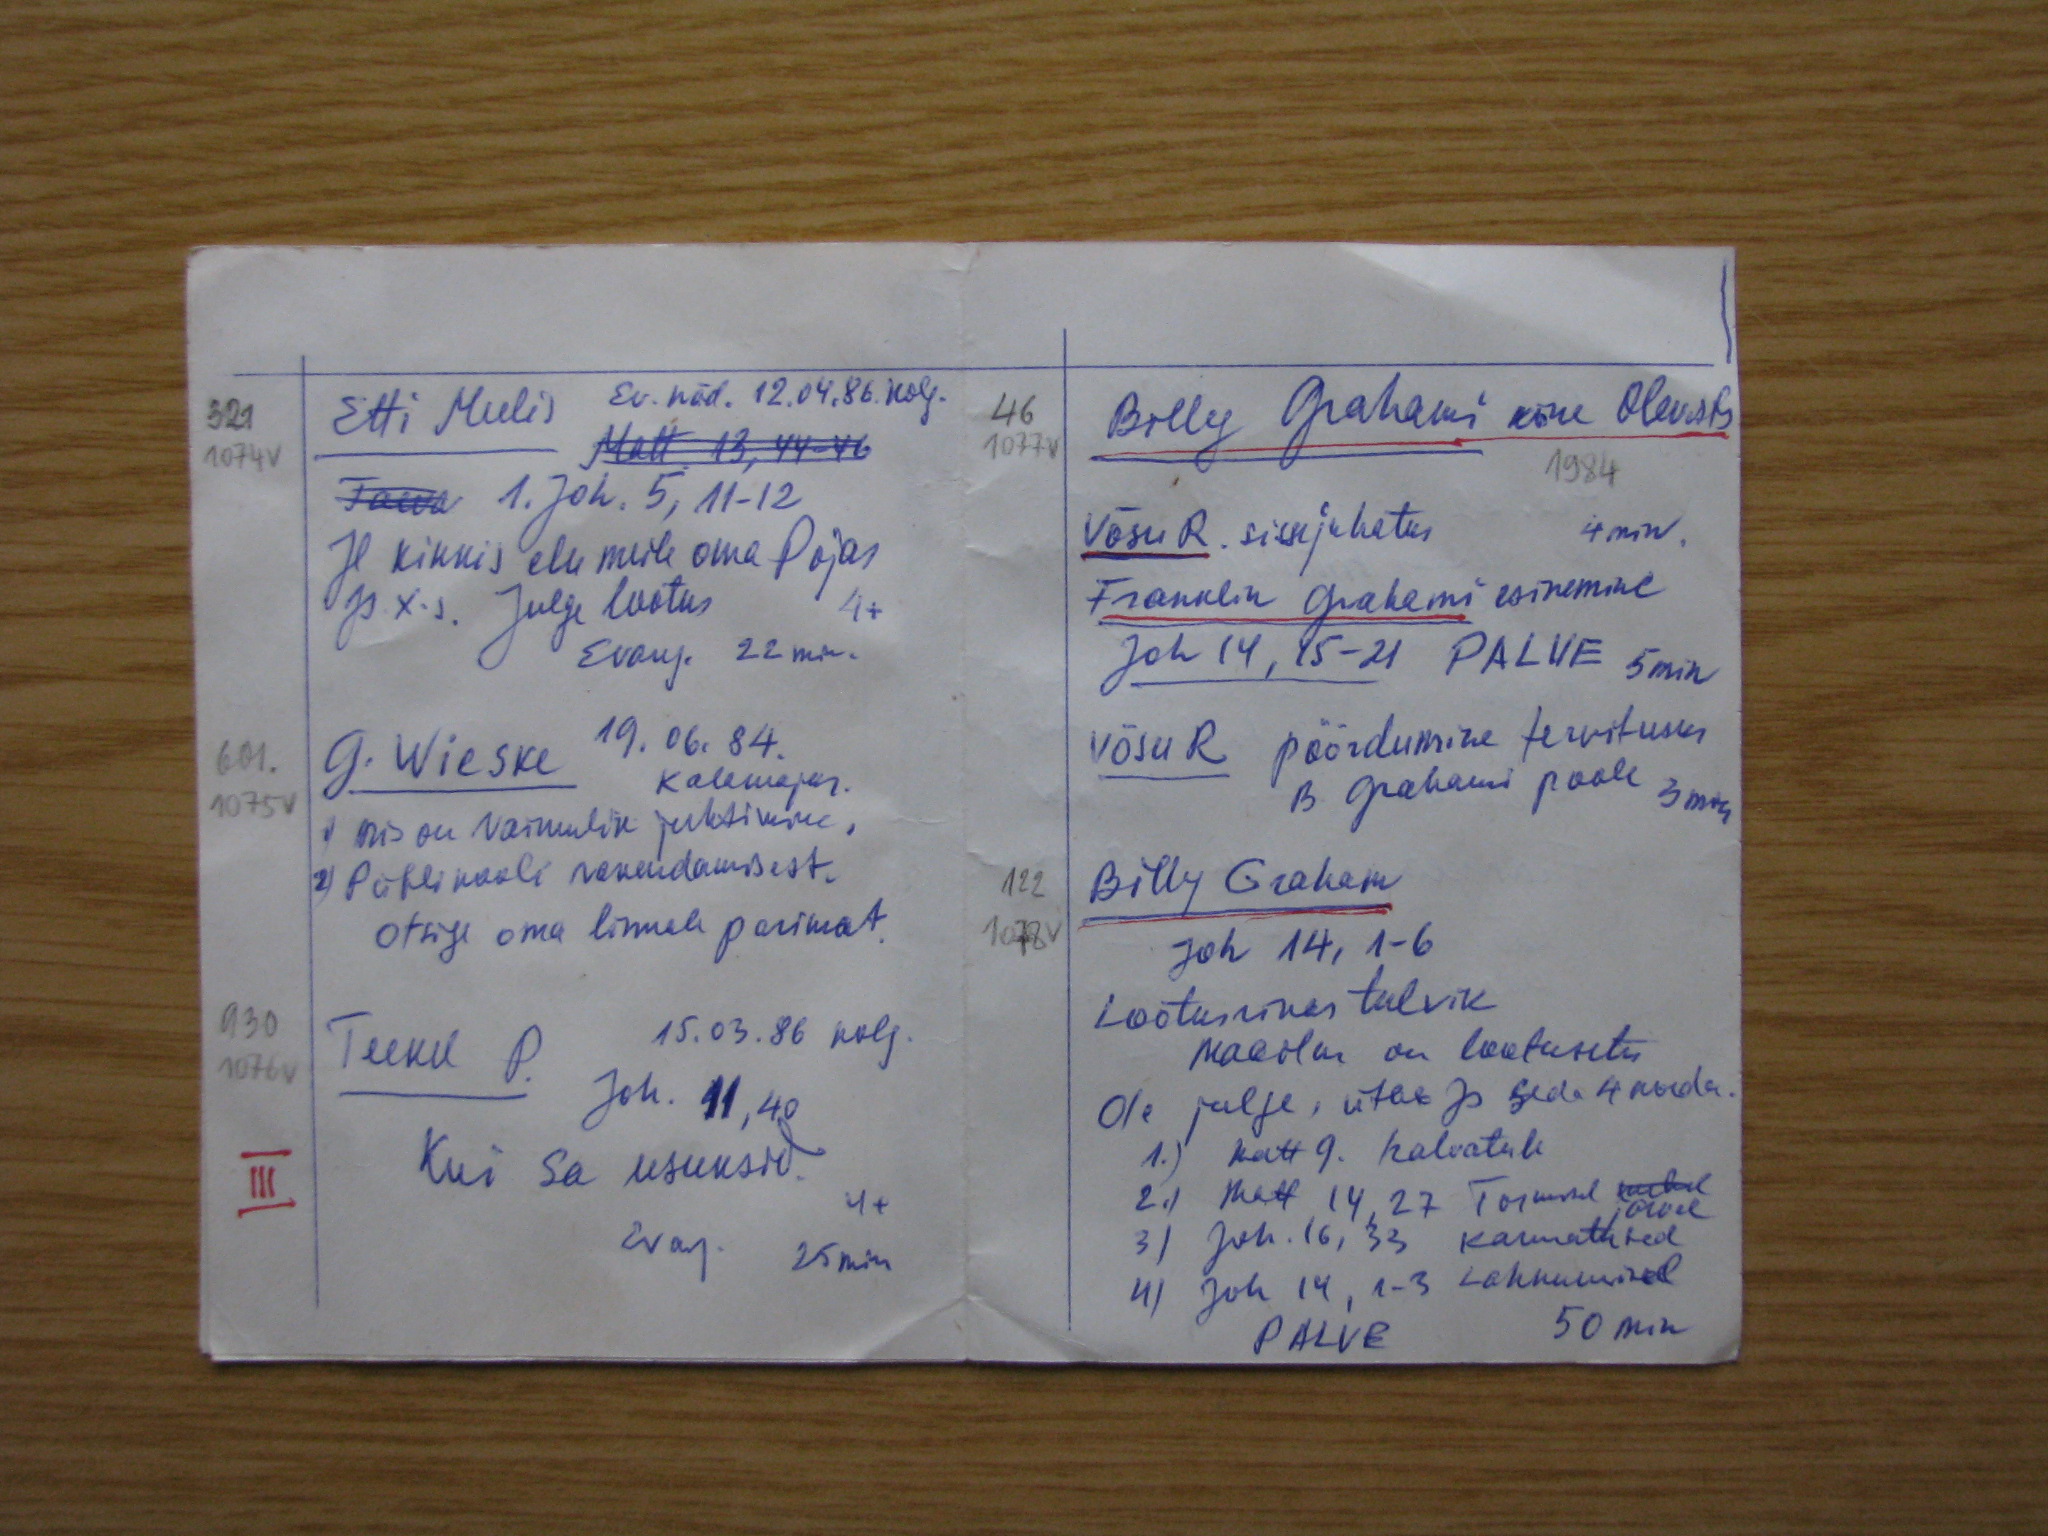 321
1074V
Etti Meelis Ev. näd. 12.04.86. kolg.
Matt 13, 44-46
1. Joh. 5, 11-12
Jl kinkis elu meile oma Pojas
Js. X-s. Julge lootus 4+
Evang. 22 min.
601.
1075V
G. Wieske 19. 06. 84.
Kalamajas.
1) Mis on Vaimulik juhtimine,
2) Piiblikooli rakendamisest.
Otsige oma linnale parimat.
930
1076V
P. 15.03.86 kolg.
Joh. 11, 40
Kui Sa usuksid.
4+
Evang. 25 min
III
46
1077V
Billy Grahami kõne Olevistes
1984
Võsu R. sissejuhatus 4 min.
Franklin Grahami esinemine
Joh 14, 15-21 PALVE 5 min
Võsu R pöördumine tervitusega
B Grahami poole 3 min
122
1078V
Billy Graham
Joh 14, 1-6
Lootusrikas tulvik
Maailm on lootusetu
Ole julge, ütles Js seda 4 korda.
1.) Matt 9. halvatule
2.) Matt 14, 27 Tormisel järvel
3) Joh. 16, 33 kannatused
4) Joh 14, 1-3 Lahkumisel
PALVE 50 min